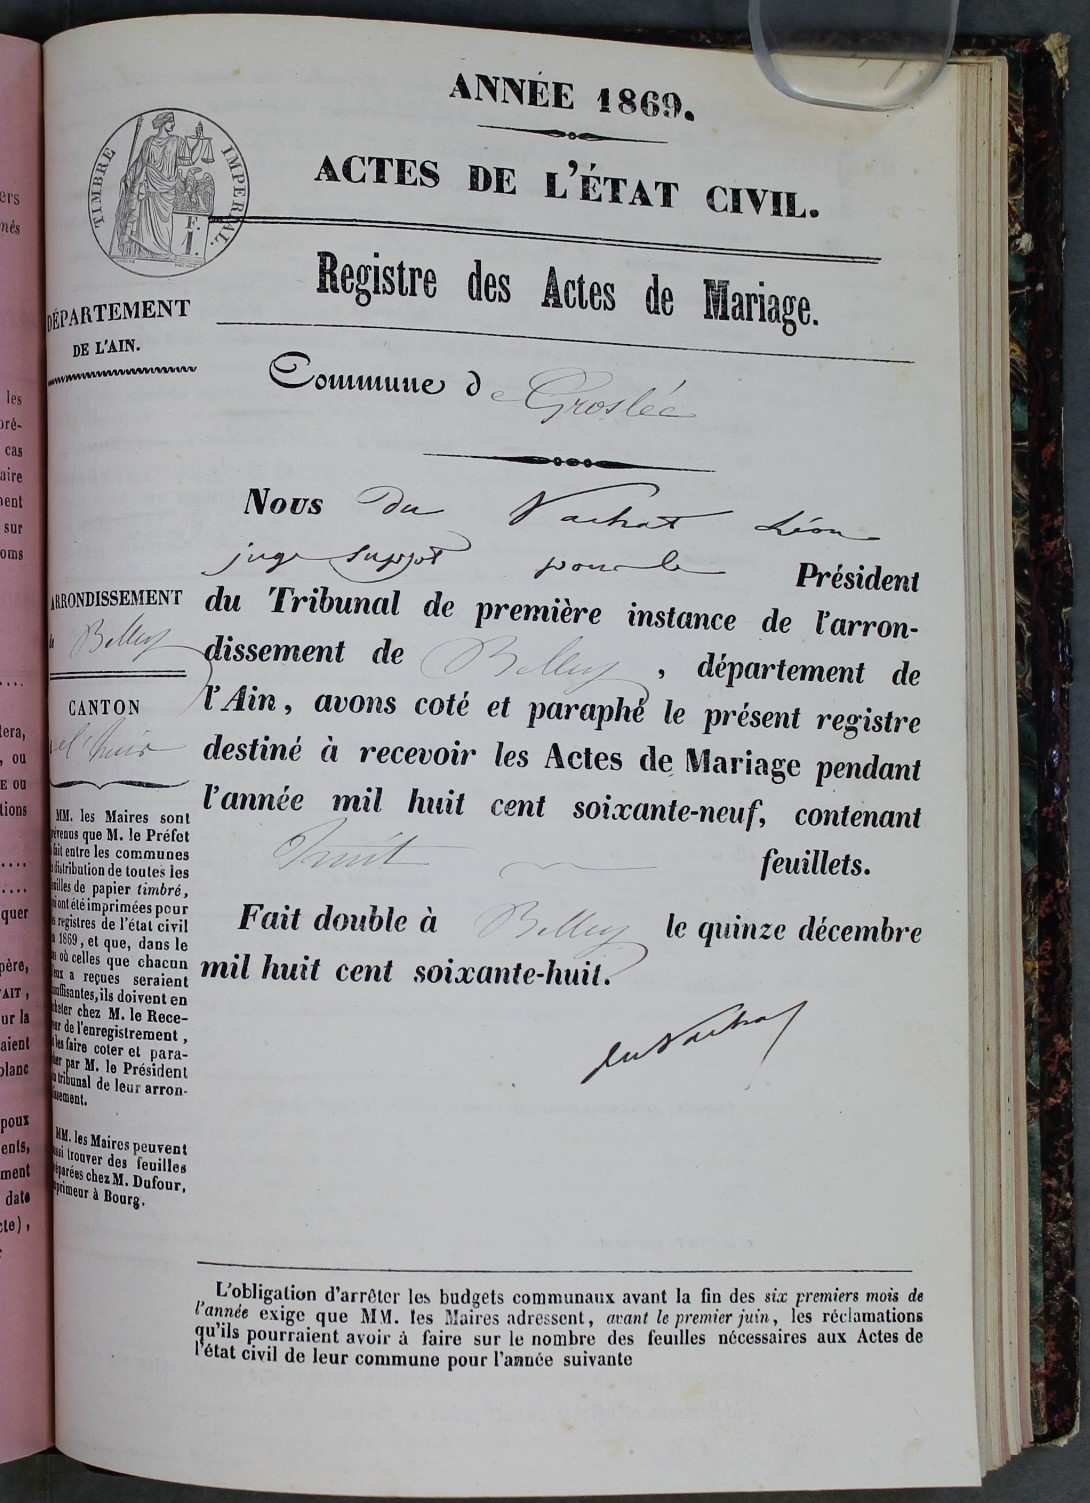 ANNÉE 1869.
ACTES DE L'ÉTAT CIVIL.
TIMBRE IMPERIAL.
F.
1.
Registre des Actes de Mariage.
DÉPARTEMENT
DE L'AIN.
Commune de Groslée
Nous du Vachat Léon
juge suppt pour le Président
du Tribunal de première instance de l'arron-
dissement de Belley, département de
l'Ain, avons coté et paraphé le présent registre
destiné à recevoir les Actes de Mariage pendant
l'année mil huit cent soixante-neuf, contenant
huit feuillets.
Fait double à Belley le quinze décembre
mil huit cent soixante-huit.
du Vachat
ARRONDISSEMENT
de Belley
CANTON
de l'huis
MM. les Maires sont
prévenus que M. le Préfet
a fait entre les communes
la distribution de toutes les
feuilles de papier timbré,
qui ont été imprimées pour
les registres de l'état civil
de 1869, et que, dans le
cas où celles que chacun
d'eux a reçues seraient
insuffisantes, ils doivent en
acheter chez M. le Rece-
veur de l'enregistrement,
et les faire coter et para-
pher par M. le Président
du tribunal de leur arron-
dissement.
MM. les Maires peuvent
aussi trouver des feuilles
préparées chez M. Dufour,
imprimeur à Bourg.
L'obligation d'arrêter les budgets communaux avant la fin des six premiers mois de
l'année exige que MM. les Maires adressent, avant le premier juin, les réclamations
qu'ils pourraient avoir à faire sur le nombre des feuilles nécessaires aux Actes de
l'état civil de leur commune pour l'année suivante